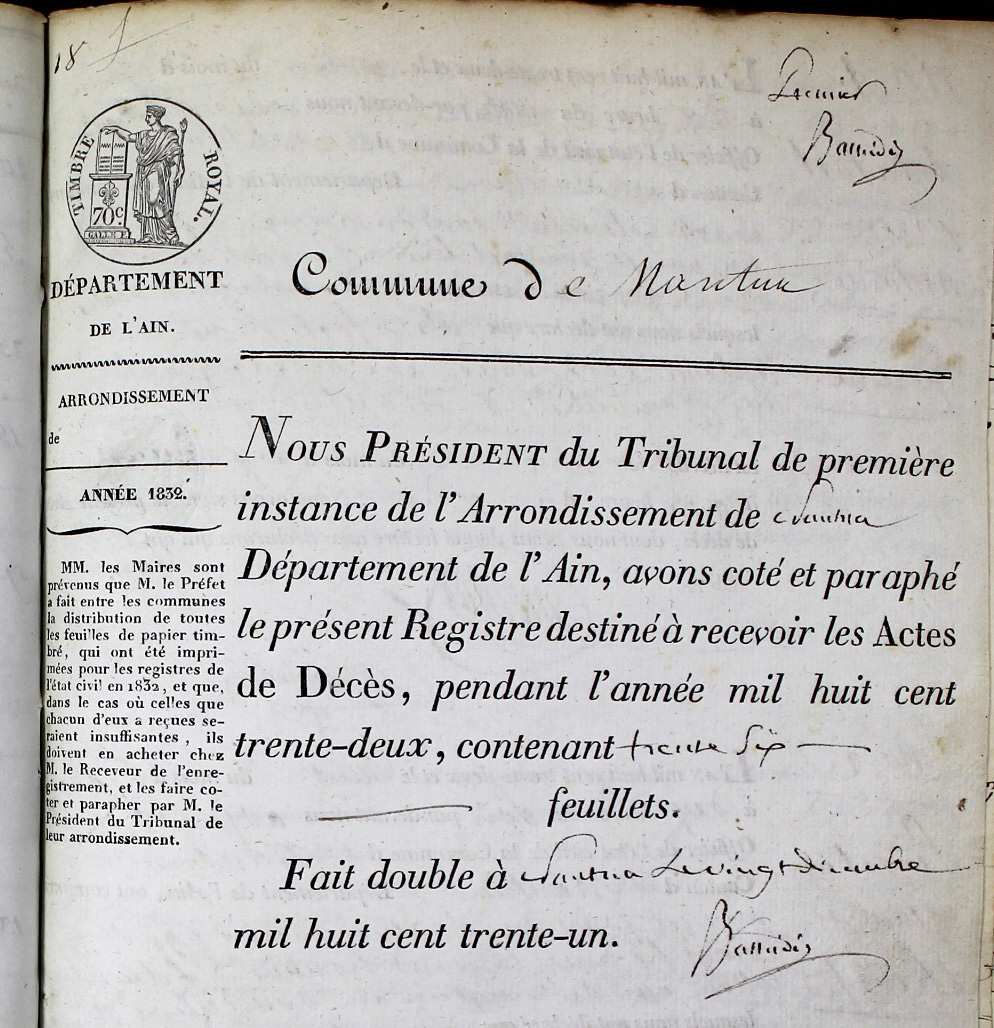 18
Premier
TIMBRE ROYAL.
70c.
DÉPARTEMENT
DE L'AIN.
Commune de Nantua
ARRONDISSEMENT
de
ANNÉE 1832.
MM. les Maires sont
prévenus que M. le Préfet
a fait entre les communes
la distribution de toutes
les feuilles de papier tim-
bré, qui ont été impri-
mées pour les registres de
l'état civil en 1832, et que,
dans le cas où celles que
chacun d'eux a reçues se-
raient insuffisantes, ils
doivent en acheter chez
M. le Receveur de l'enre-
gistrement, et les faire co-
ter et parapher par M. le
Président du Tribunal de
leur arrondissement.
NOUS PRÉSIDENT du Tribunal de première
instance de l'Arrondissement de Nantua
Département de l'Ain, avons coté et paraphé
le présent Registre destiné à recevoir les Actes
de Décès, pendant l'année mil huit cent
trente-deux, contenant trente six
feuillets.
Fait double à Nantua le vingt décembre
mil huit cent trente-un.